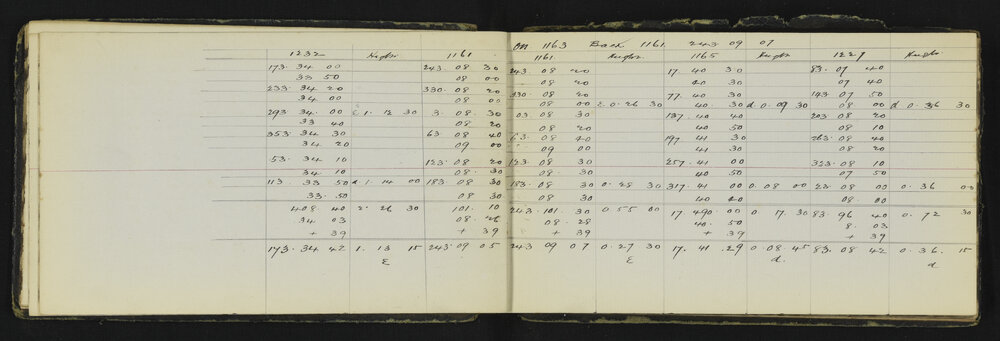 On 1163 Back 1161. 243 09 07
1232 Heghts. 1161 1161. Heghts. 1165 Heghts. 1227 Heghts.
173. 34 00 243. 08 30 243. 08 20 17. 40 30 83. 07 40
33 50 08 00 08 20 40 30 07 40
233. 34 20 330. 08 20 330. 08 20 77. 40 30 143. 07 50
34 00 08 00 08 00 E 0. 26 30 40 30 d 0. 09 30 08 00 d 0. 36 30
293 34. 00 E 1. 12 30 3. 08 30 03 08 30 137. 40 40 203 08 20
33 40 08 20 08 20 40 50 08 10
353. 34 30 63. 08 40 63. 08 40 197. 41 30 263. 08 40
34 20 09 00 09 00 41 30 08 20
53. 34 10 123. 08 20 123. 08 30 257. 41 00 323. 08 10
34 10 08 30 08 30 40 50 07 50
113. 33 50 d 1. 14 00 183 08 30 183. 08 30 0. 28 30 317. 41 00 0. 08 00 23. 08 00 0. 36 00
33. 50 08 30 08 30 40 20 08. 00
408. 40 2. 26 30 101. 10 243. 101. 30 0. 55 00 17. 490. 00 0. 17. 30 83. 96 40 0. 72 30
34. 03 08. 26 08. 28 40. 50 8. 03
+ 39 + 39 + 39 + 39 + 39
173. 34 42 1. 13 15 243. 09 05 243 09 07 0. 27 30 17. 41. 29 0. 08. 45 83. 08 42 0. 36. 15
E E d. d